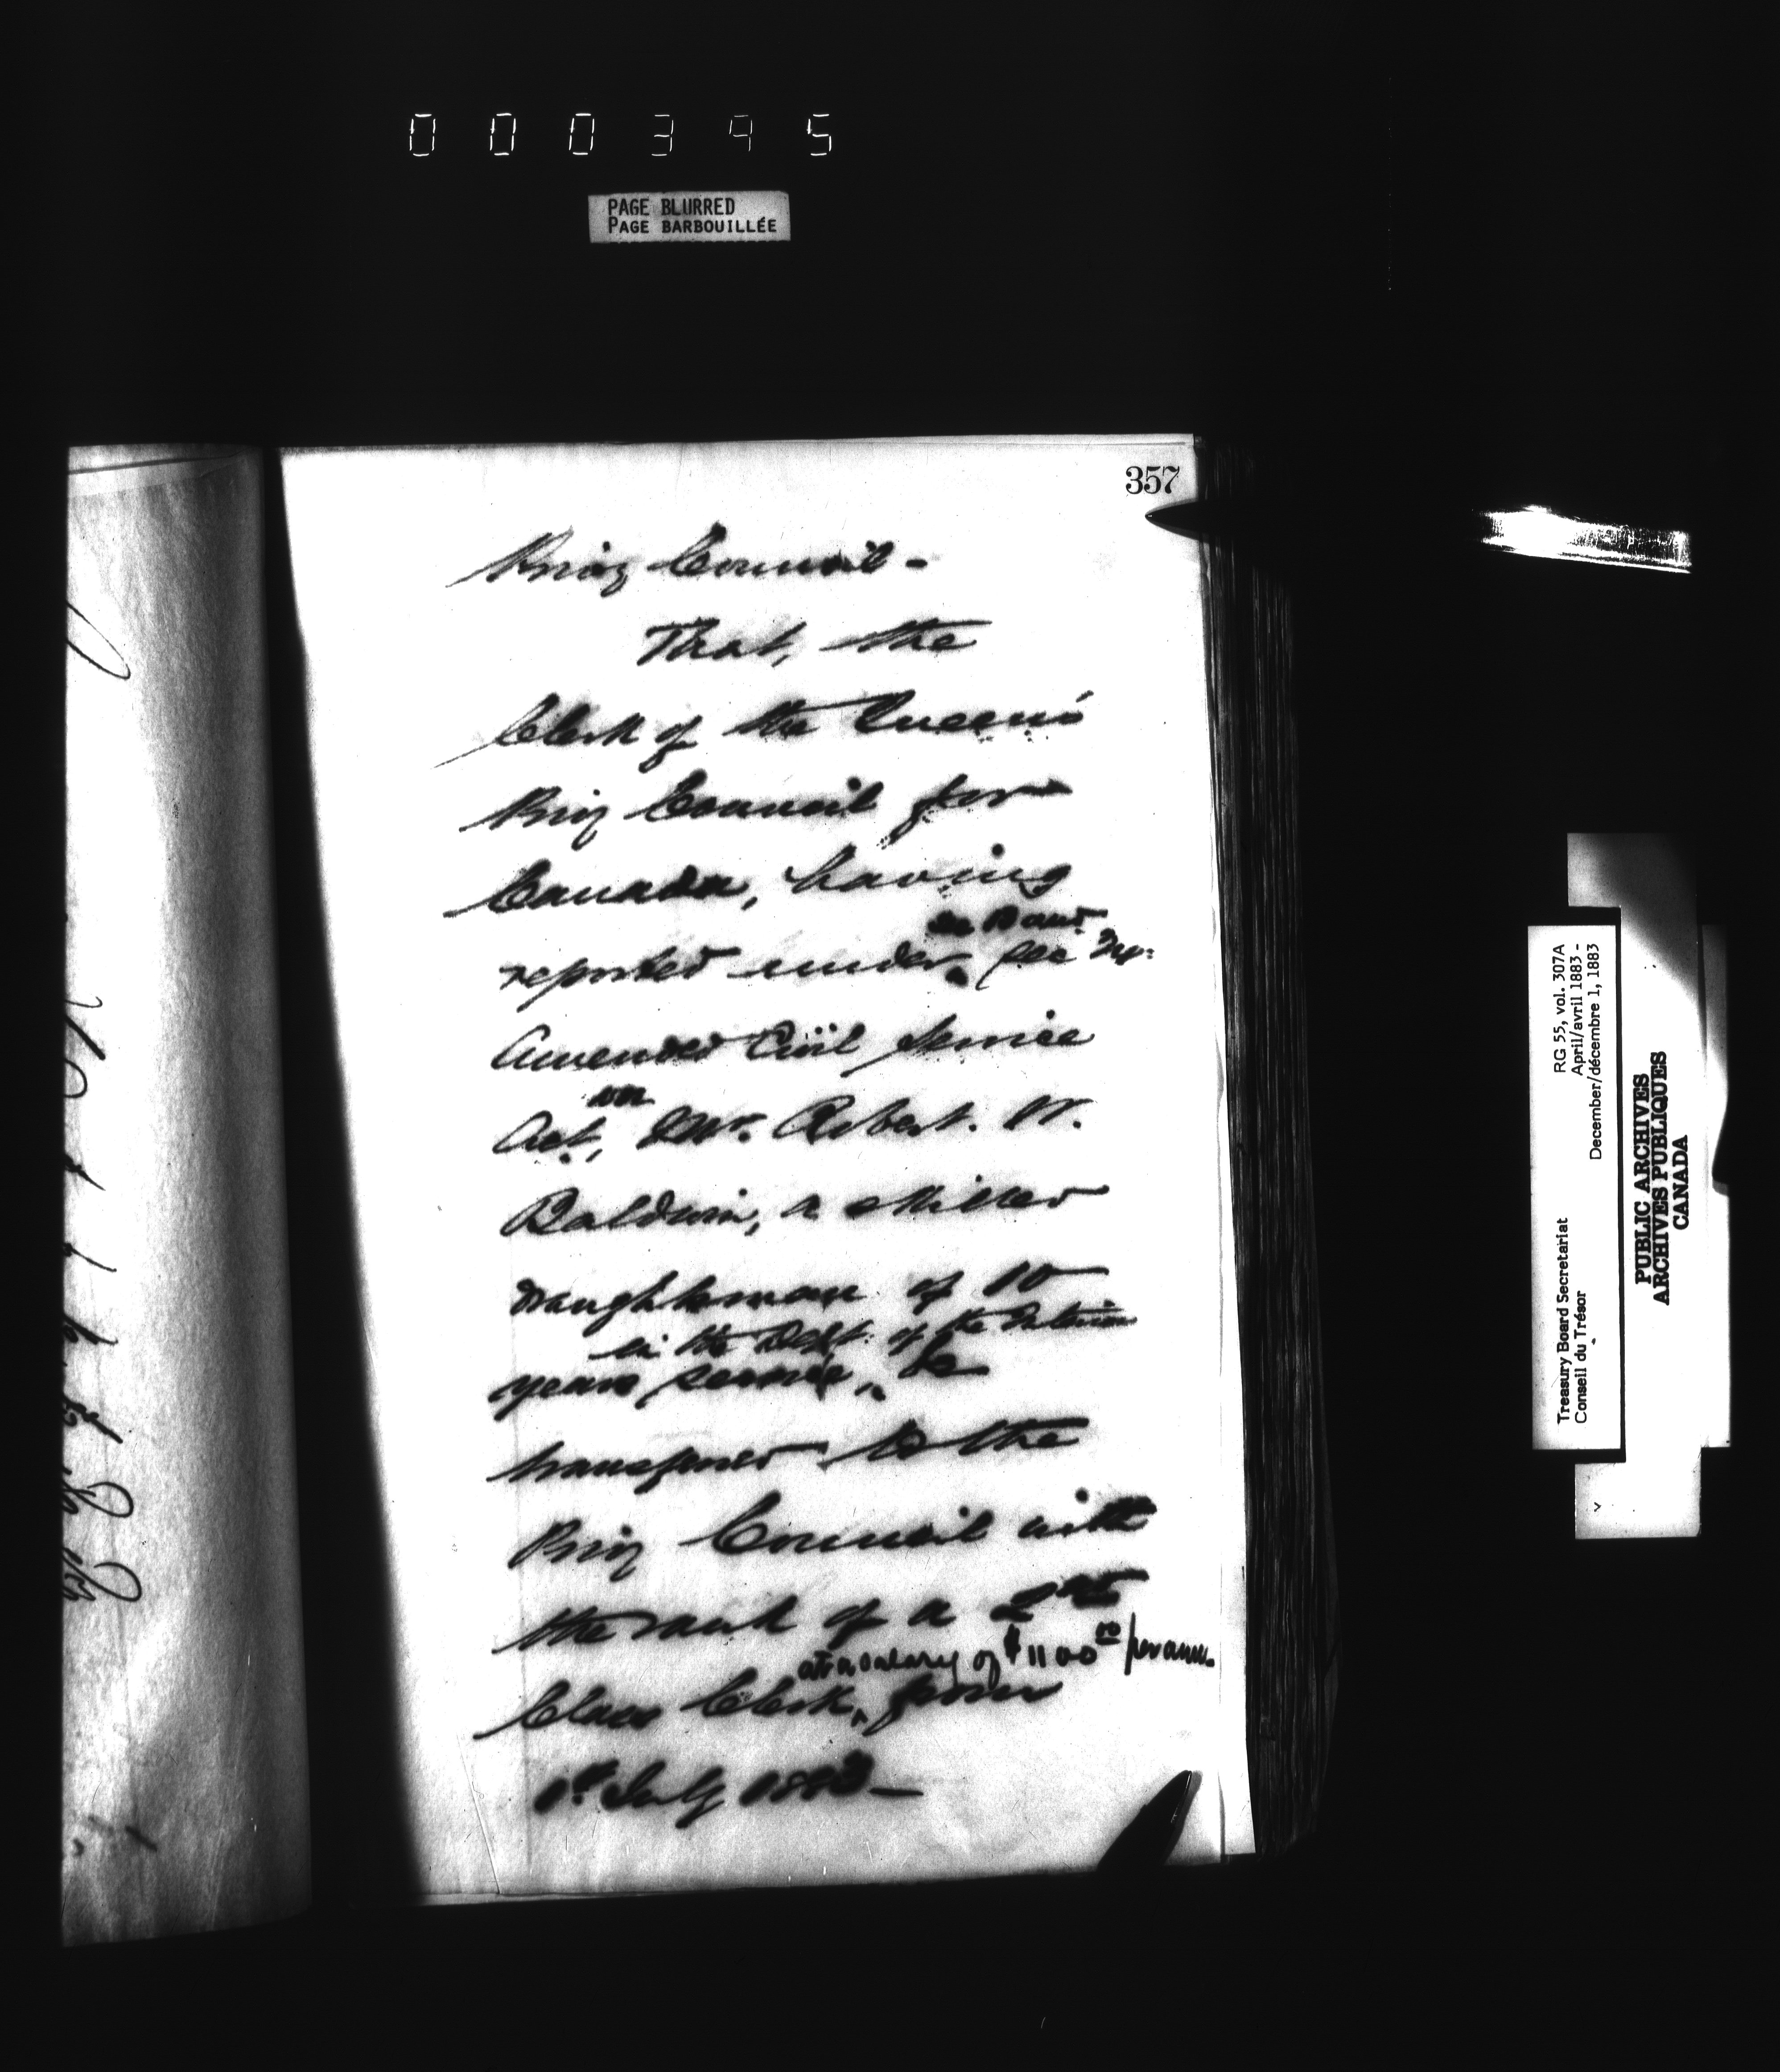 000395
PAGE BLURRED
PAGE BARBOUILLÉE
357
Privy Council -
That, the
Clerk of the Queen's
Privy Council for
Canada, having
reported under Sec
Amended Civil Service
Act, Mr. Robert. W.
Baldwin, a skilled
draughtsman of 10
in the Dept. of the Interior
years service, be
transferred to the
Privy Council with
the rank of a 2nd
at a salary of $1100 00 per ann.
Class Clerk, from
1st July 1883 -
RG 55, vol. 307A
April/avril 1883 -
December/décembre 1, 1883
Treasury Board Secretariat
Conseil du Trésor
PUBLIC ARCHIVES
ARCHIVES PUBLIQUES
CANADA